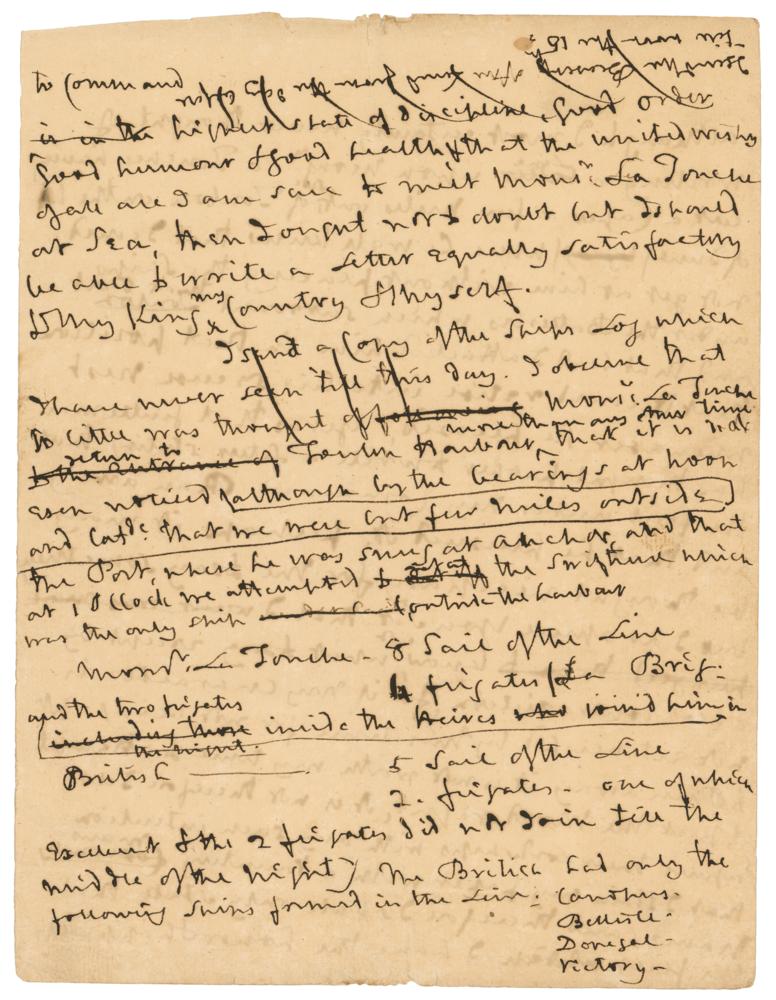 to Command
is in the highest state of discipline, good order
good humour & good health & that the united wishes
of all are I am sure to meet Monsr. La Touche
at Sea, then I ought not to doubt but I should
be able to write a Letter equally satisfactory
to My King, my Country & Myself.
I send a Copy of the Ships Log which
I have never seen till this day. I observe that
so little was thought of Monsr. La Touche
more than any other time
return to
to the entrance of Toulon Harbour, that it is not
even noticed although by the bearings at noon
and Catde. that we were but few miles outside
the Port, where he was snug at anchor, and that
at 1 OClock we attempted to cut off the Scripture which
was the only ship under sail outside the harbour
Monsr. La Touche - 8 Sail of the Line
4 frigates & a Brig.
and the two frigates
including those inside the Heires who joined him in
the night.
British 5 Sail of the Line
2. frigates - one of which
Excellent & the 2 frigates did not Join till the
middle of the night) The British had only the
following Ships formed in the Line: Canopus.
Bellisle.
Donegal -
Victory -